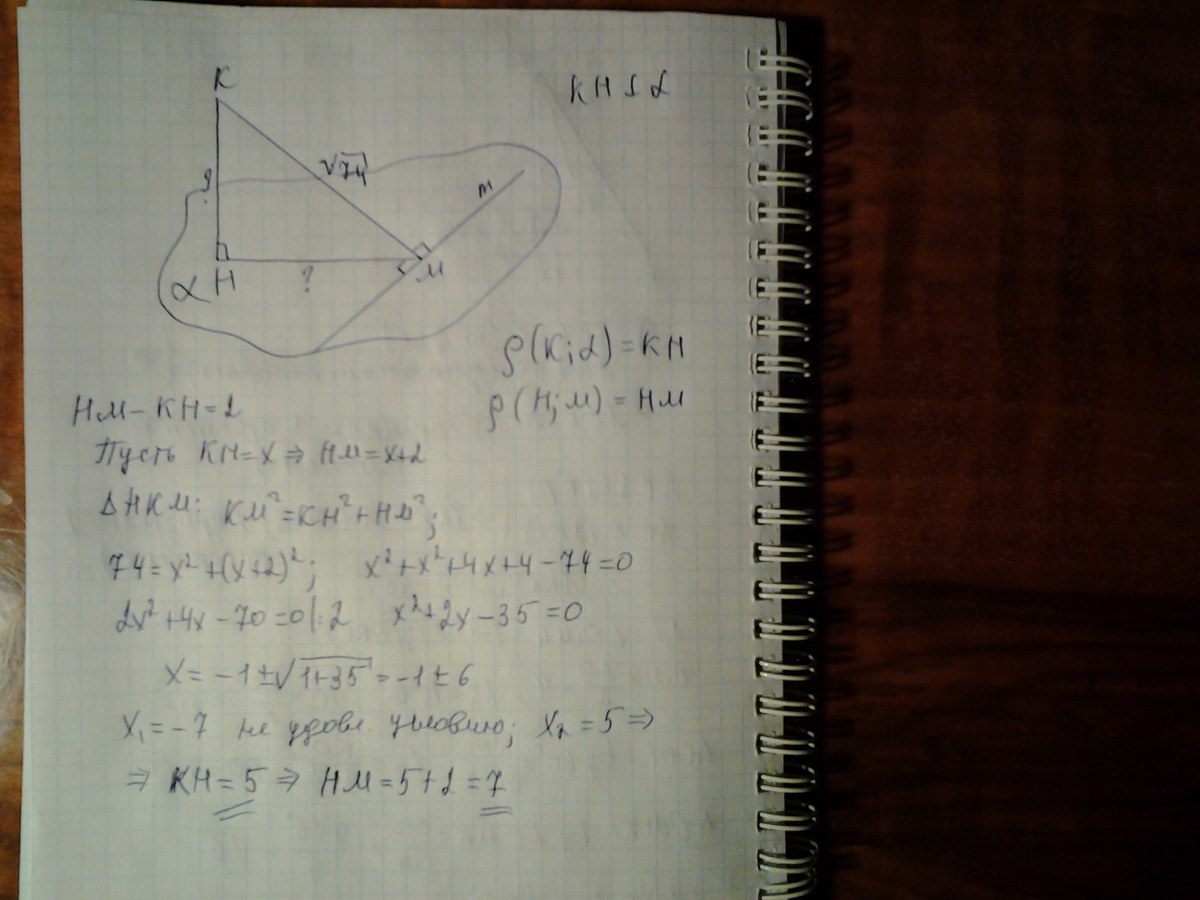 K
KH ⊥ α
√74
?
m
α H
?
M
ρ(K; α) = KH
HM - KH = 2
ρ(H; m) = HM
Пусть KH = x ⇒ HM = x+2
Δ HKM: KM² = KH² + HM²;
74 = x² + (x+2)²; x² + x² + 4x + 4 - 74 = 0
2x² + 4x - 70 = 0 |:2 x² + 2x - 35 = 0
x = -1 ± √1+35 = -1 ± 6
x₁ = -7 не удовл. условию; x₂ = 5 ⇒
⇒ KH = 5 ⇒ HM = 5+2 = 7